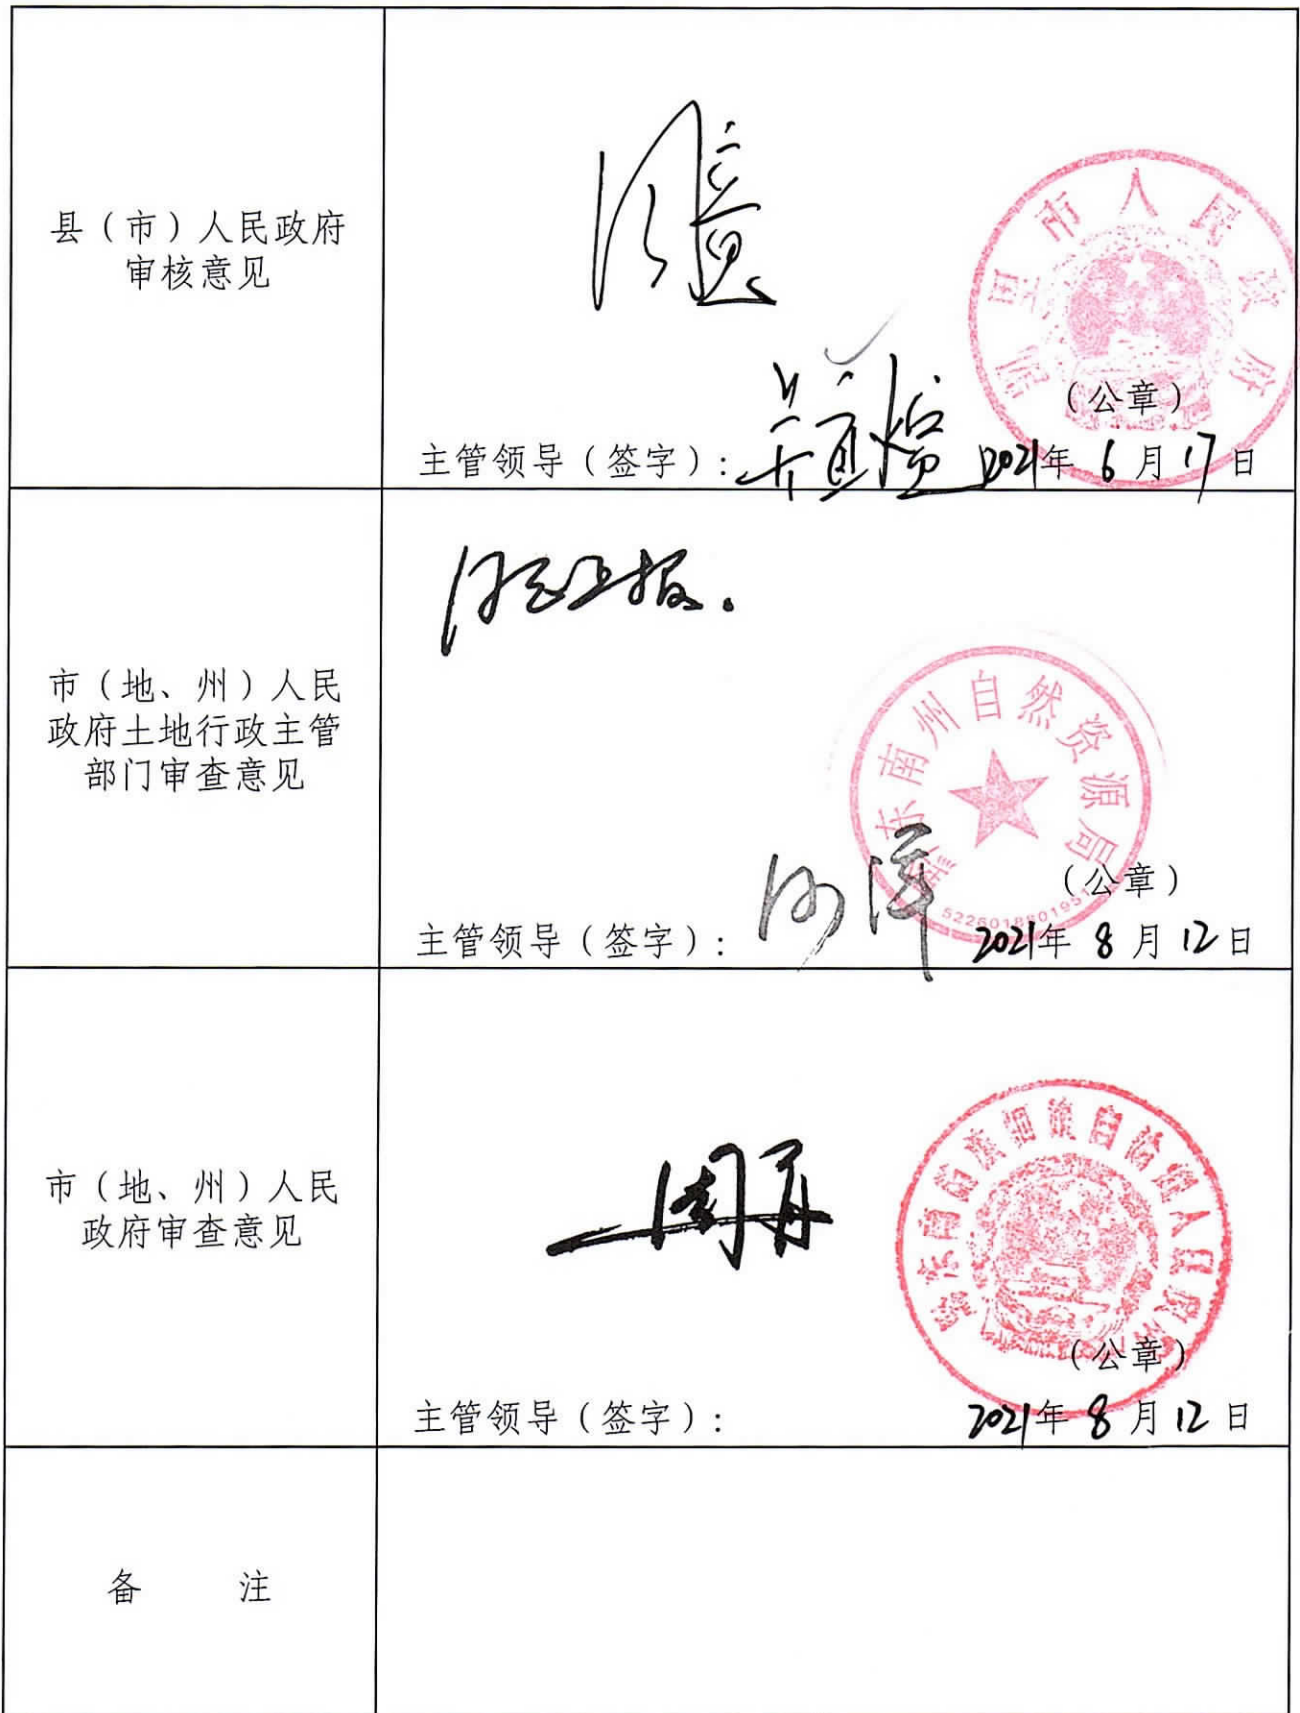 县（市）人民政府
审核意见
同意
凯里市人民政府
（公章）
主管领导（签字）：
2021年 6 月 17 日
市（地、州）人民
政府土地行政主管
部门审查意见
同意上报.
黔东南州自然资源局
（公章）
主管领导（签字）：
2021年 8 月 12 日
市（地、州）人民
政府审查意见
黔东南苗族侗族自治州人民政府
（公章）
主管领导（签字）：
2021年 8 月 12 日
备 注